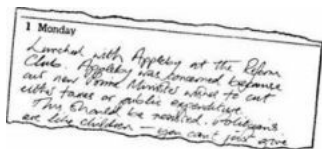 1 Monday
Lunched with Appleby at the Reform
Club. Appleby was concerned because
our new Prime Minister wants to cut
either taxes or public expenditure.
This should be resisted. Politicians
are like children — you can't just give